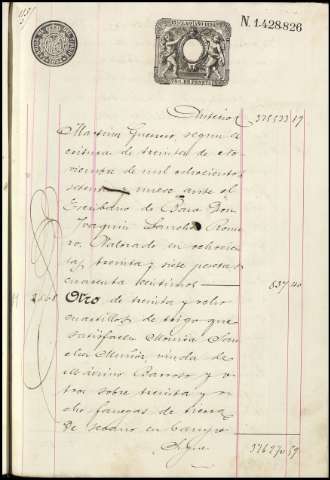 N. 1.428.826
Anterior 375533 19
Martina Guerrero segun es
critura de treinta de No
viembre de mil ochocientos
setenta y nueve ante el
Escribano de Baza Don
Joaquin Sanchez Rome
ro. Valorado en ochocien
tas treinta y siete pesetas
cuarenta centimos 837 40
Otro de treinta y ocho
cuartillos de trigo que
satisfacen Monica San
chez Muñoz, viuda de
Barroso y o
tros sobre treinta y o
cho fanegas de tierra
de secano en Campo
Sigue 376370 59